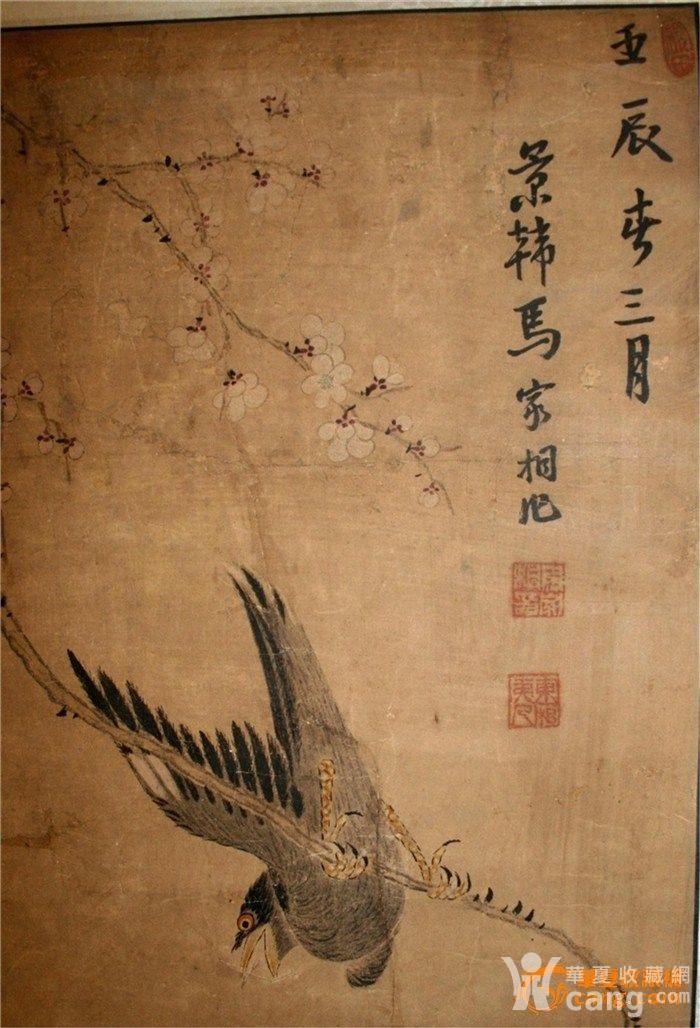 壬辰春三月
景韩马家相作
華夏收藏網
cang.com